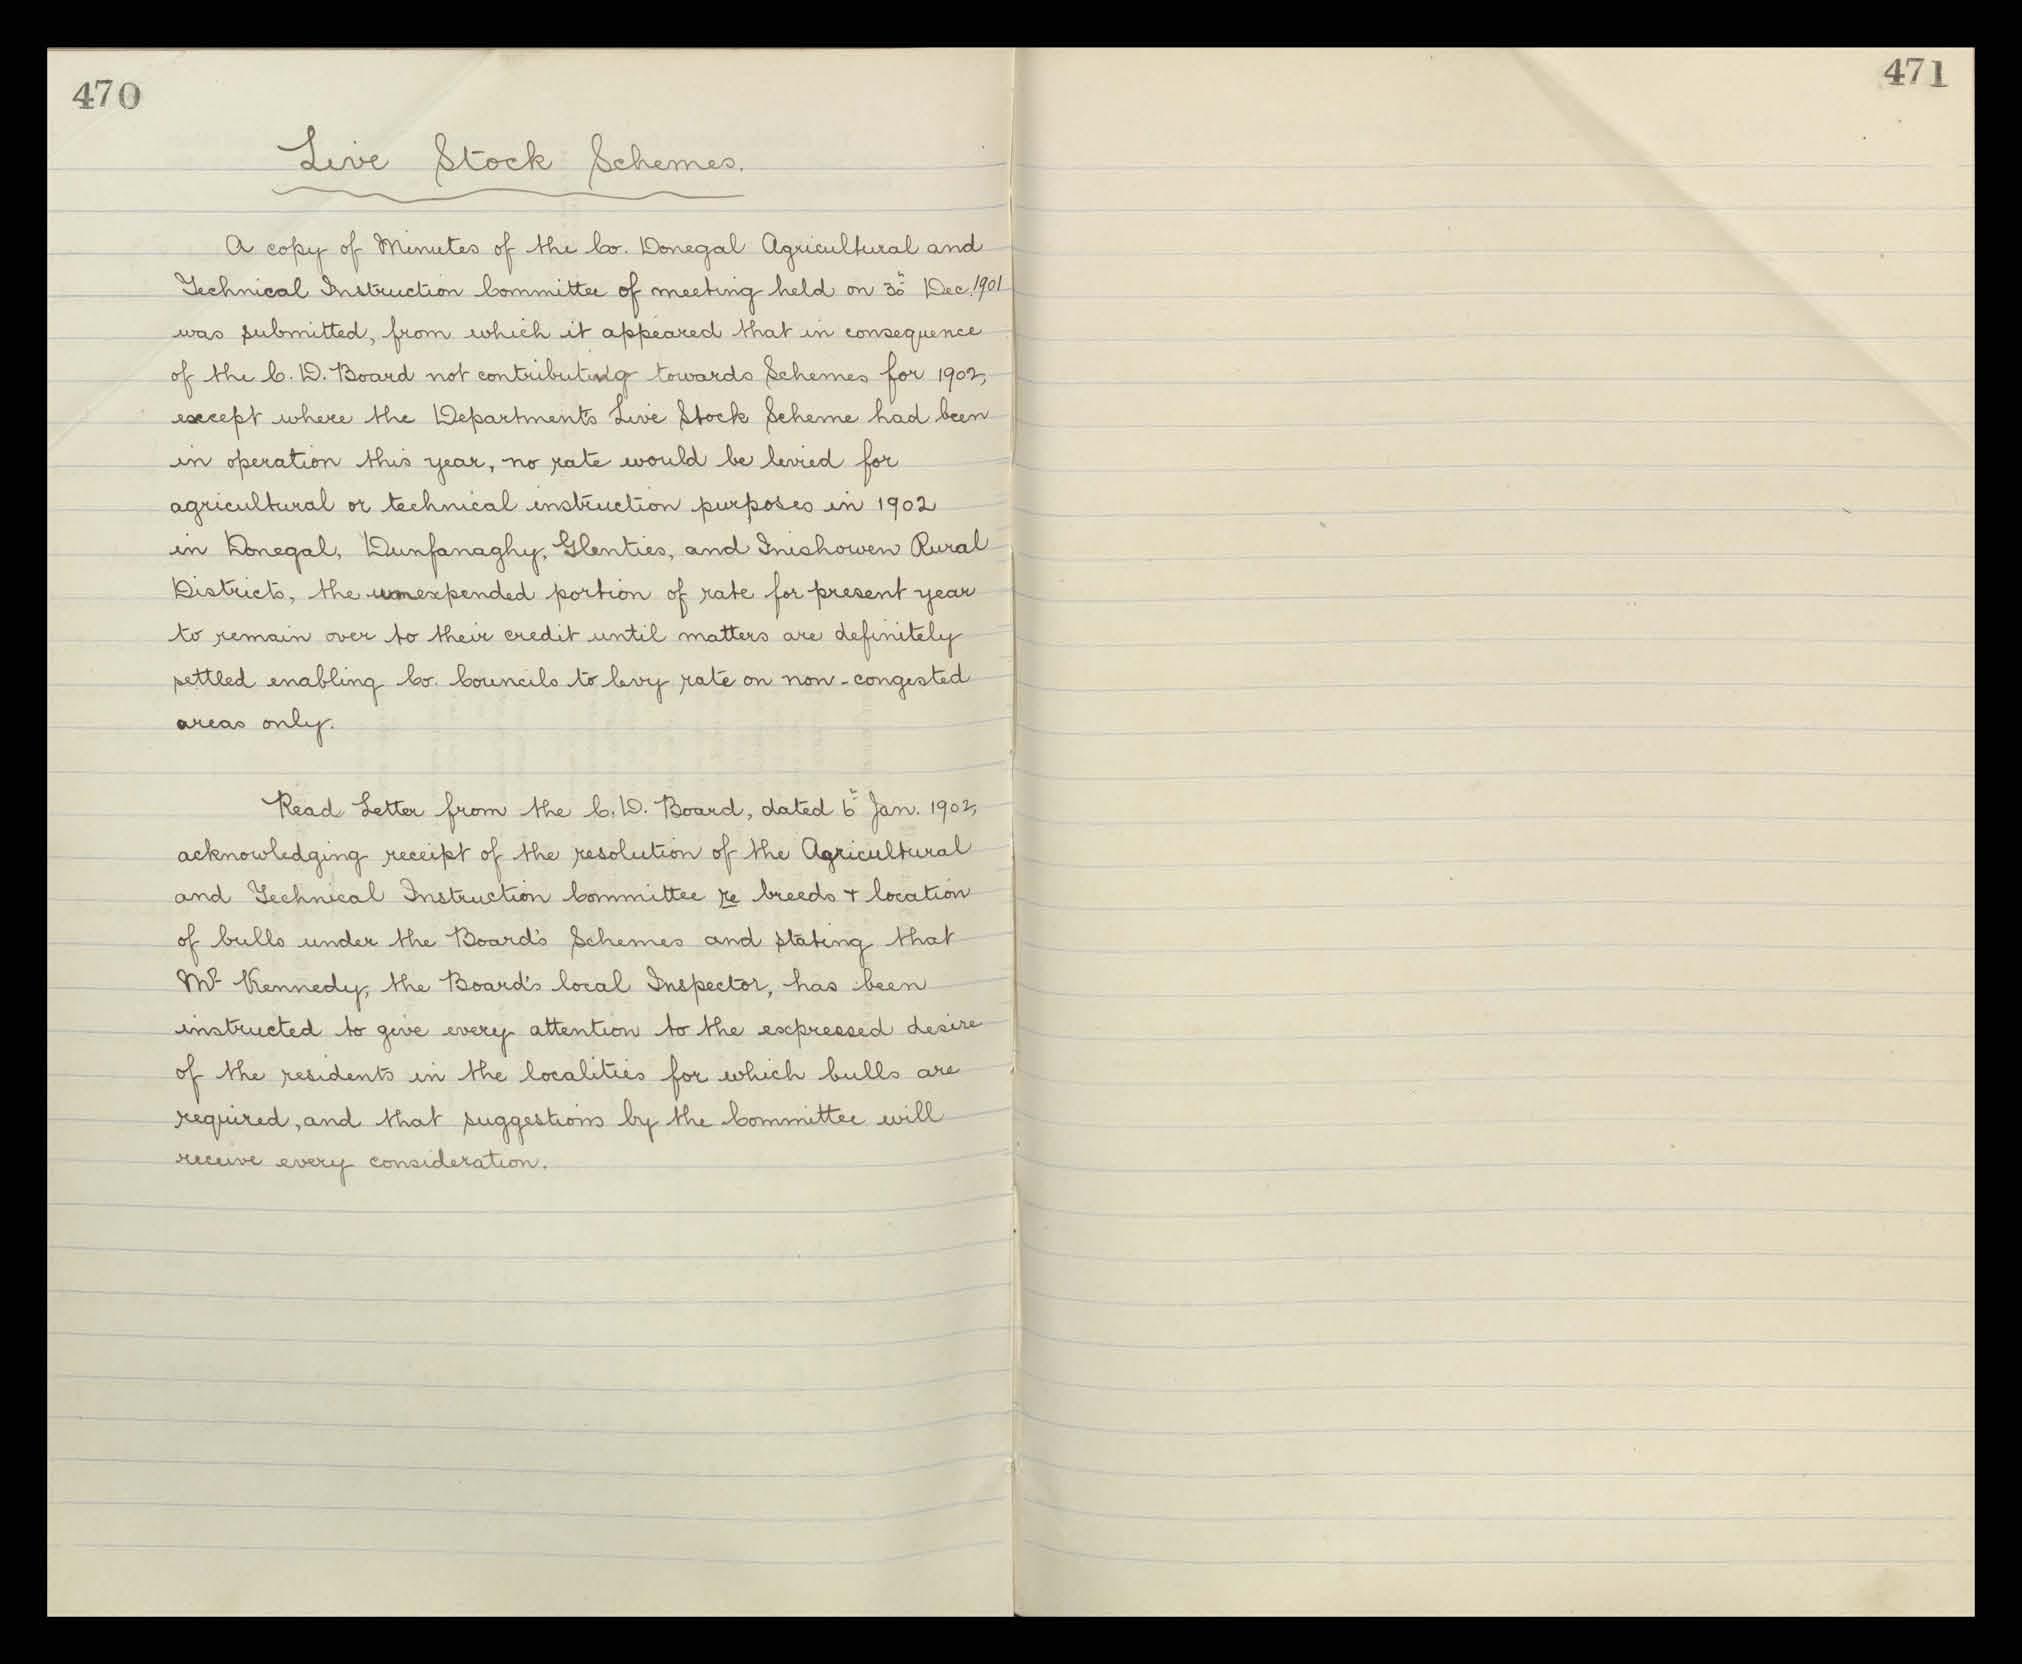 470
Live Stock Schemes.
A copy of Minutes of the Co. Donegal Agricultural and
Technical Instruction Committee of meeting held on 30th Dec. 1901
was submitted, from which it appeared that in consequence
of the C. D. Board not contributing towards Schemes for 1902,
except where the Department's Live Stock Scheme had been
in operation this year, no rate would be levied for
agricultural or technical instruction purposes in 1902
in Donegal, Dunfanaghy, Glenties, and Inishowen Rural
Districts, the unexpended portion of rate for present year
to remain over to their credit until matters are definitely
settled enabling Co. Councils to levy rate on non-congested
areas only.
Read Letter from the C. D. Board, dated 6th Jan. 1902,
acknowledging receipt of the resolution of the Agricultural
and Technical Instruction Committee re breeds & location
of bulls under the Board's Schemes and stating that
Mr Kennedy, the Board's local Inspector, has been
instructed to give every attention to the expressed desire
of the residents in the localities for which bulls are
required, and that suggestions by the Committee will
receive every consideration.
471